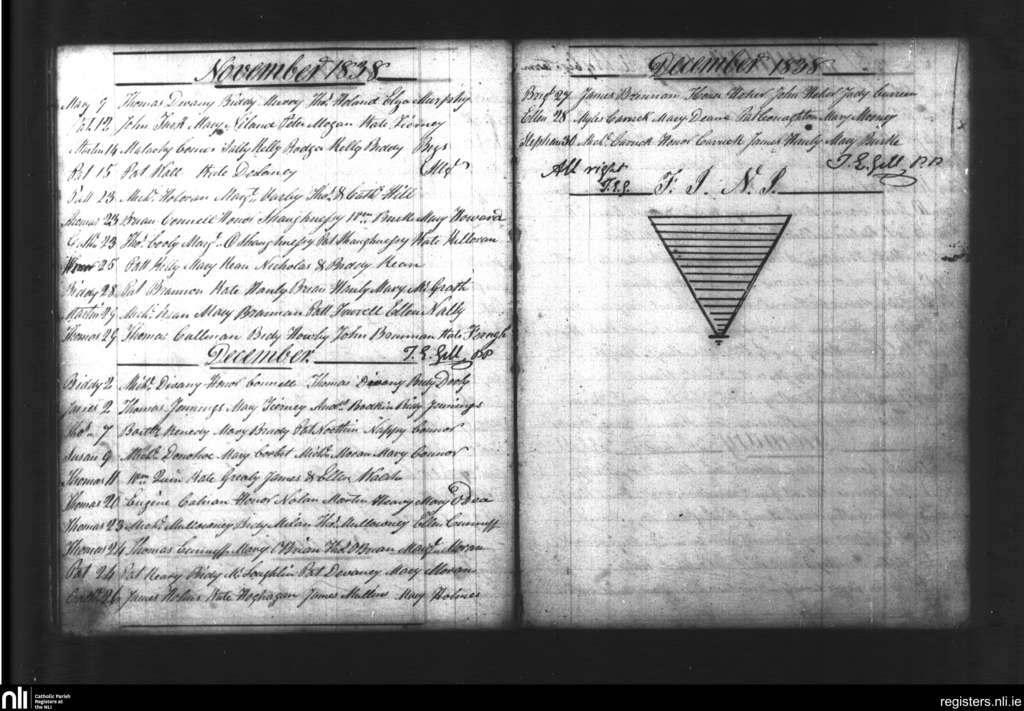 November 1838
Mary 7 Thomas Dwany Biddy Thos. Noland Elza Murphy
Pat 12 John Mary Niland Peter Mogan Kate Tierney
Martin 14 Malachy Connor Sally Kelly Hodge Kelly Biddy
Pat 15 Pat Kate Delaney
Patt 23 Mich. Holoran Marg. Varly Thos. & Cath. Hill
Thomas 23 Brian Connell Honor Shaughnessy Wm. Burke Mary Howard
23 Thos. Cooly Marg. O Shaughnessy Pat Shaughnessy Kate Hilloran
Honor 25 Patt Kelly Mary Kean Nicholas & Bidsey Kean
Biddy 28 Pat Brannon Kate Hanly Brian Hanly Mary McGrath
Martin 29 Mich. Kean Mary Brannan Patt Farrell Ellen Nally
Thomas 29 Thomas Callinan Bidy Howly John Brannan Kate
December T. E. Gill PP
Biddy 2 Mich. Divany Honor Connell Thomas Divany Bidy Dooly
James 2 Thomas Jennings Mary Tierney Andw. Bodkin Bidy Jennings
Thos. 7 Barth. Kenedy Mary Brady Pat Noethin Nappy Connor
Susan 9 Mich. Donohoe Mary Corbet Mich. Moran Mary Connor
Thomas 11 Wm. Quin Kate Grealy James & Ellen Walsh
Thomas 20 Eugine Calvan Honor Nolan Martin Heavy Mary O Dea
Thomas 23 Mich. Mullowney Bidy Thos. Mullowney Ellen Cunniff
Thomas 24 Thomas Cunniff Mary O'Brian Thos. O'Brian Marg. Moran
Pat 24 Pat Keary Bidy McLoughlin Pat Devaney Mary Moran
Cath. 26 James Kate Heghagan James Mullin Mary Holmes
December 1838
Brigt. 27 James Brennan Honor Maher John Maher Judy Curren
Ellen 28 Myles Carrick Mary Deane Pat Conaghton Mary Money
Stephen 31 Mich. Carrick Honor Carrick James Hanly Mary Burke
All right T. E. Gill, P.P.
T.E.G. F. I. N. I.
nli Catholic Parish
Registers at
the NLI
registers.nli.ie